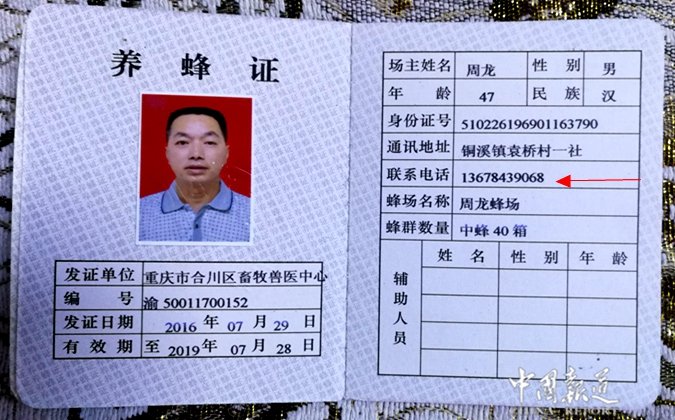 养蜂证
发证单位 重庆市合川区畜牧兽医中心
编号 渝 50011700152
发证日期 2016 年 07 月 29 日
有效期 至 2019 年 07 月 28 日
场主姓名 周龙 性别 男
年龄 47 民族 汉
身份证号 510226196901163790
通讯地址 铜溪镇袁桥村一社
联系电话 13678439068
蜂场名称 周龙蜂场
蜂群数量 中蜂 40 箱
辅助人员 姓名 性别 年龄
中国报道